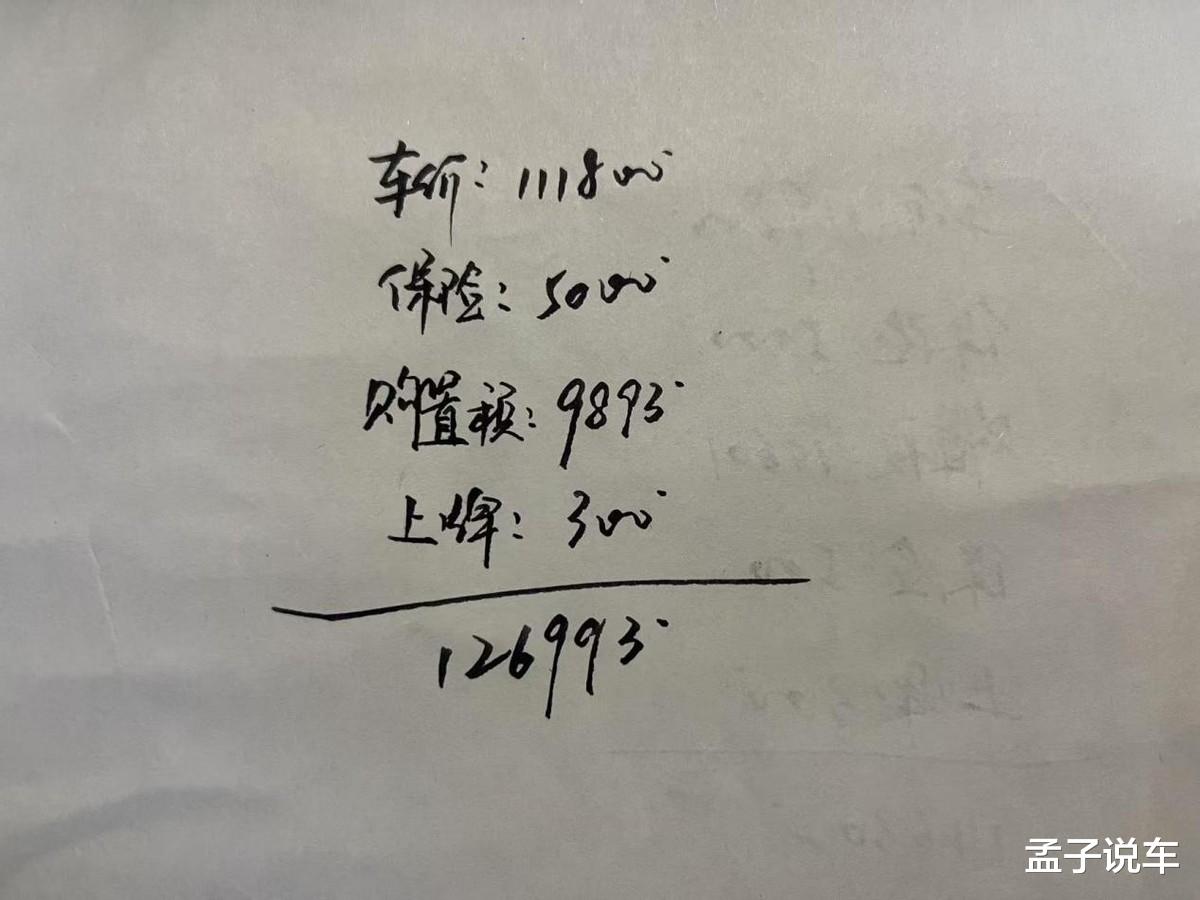 车价：111800
保险：5000
购置税：9893
上牌：300
126993
孟子说车